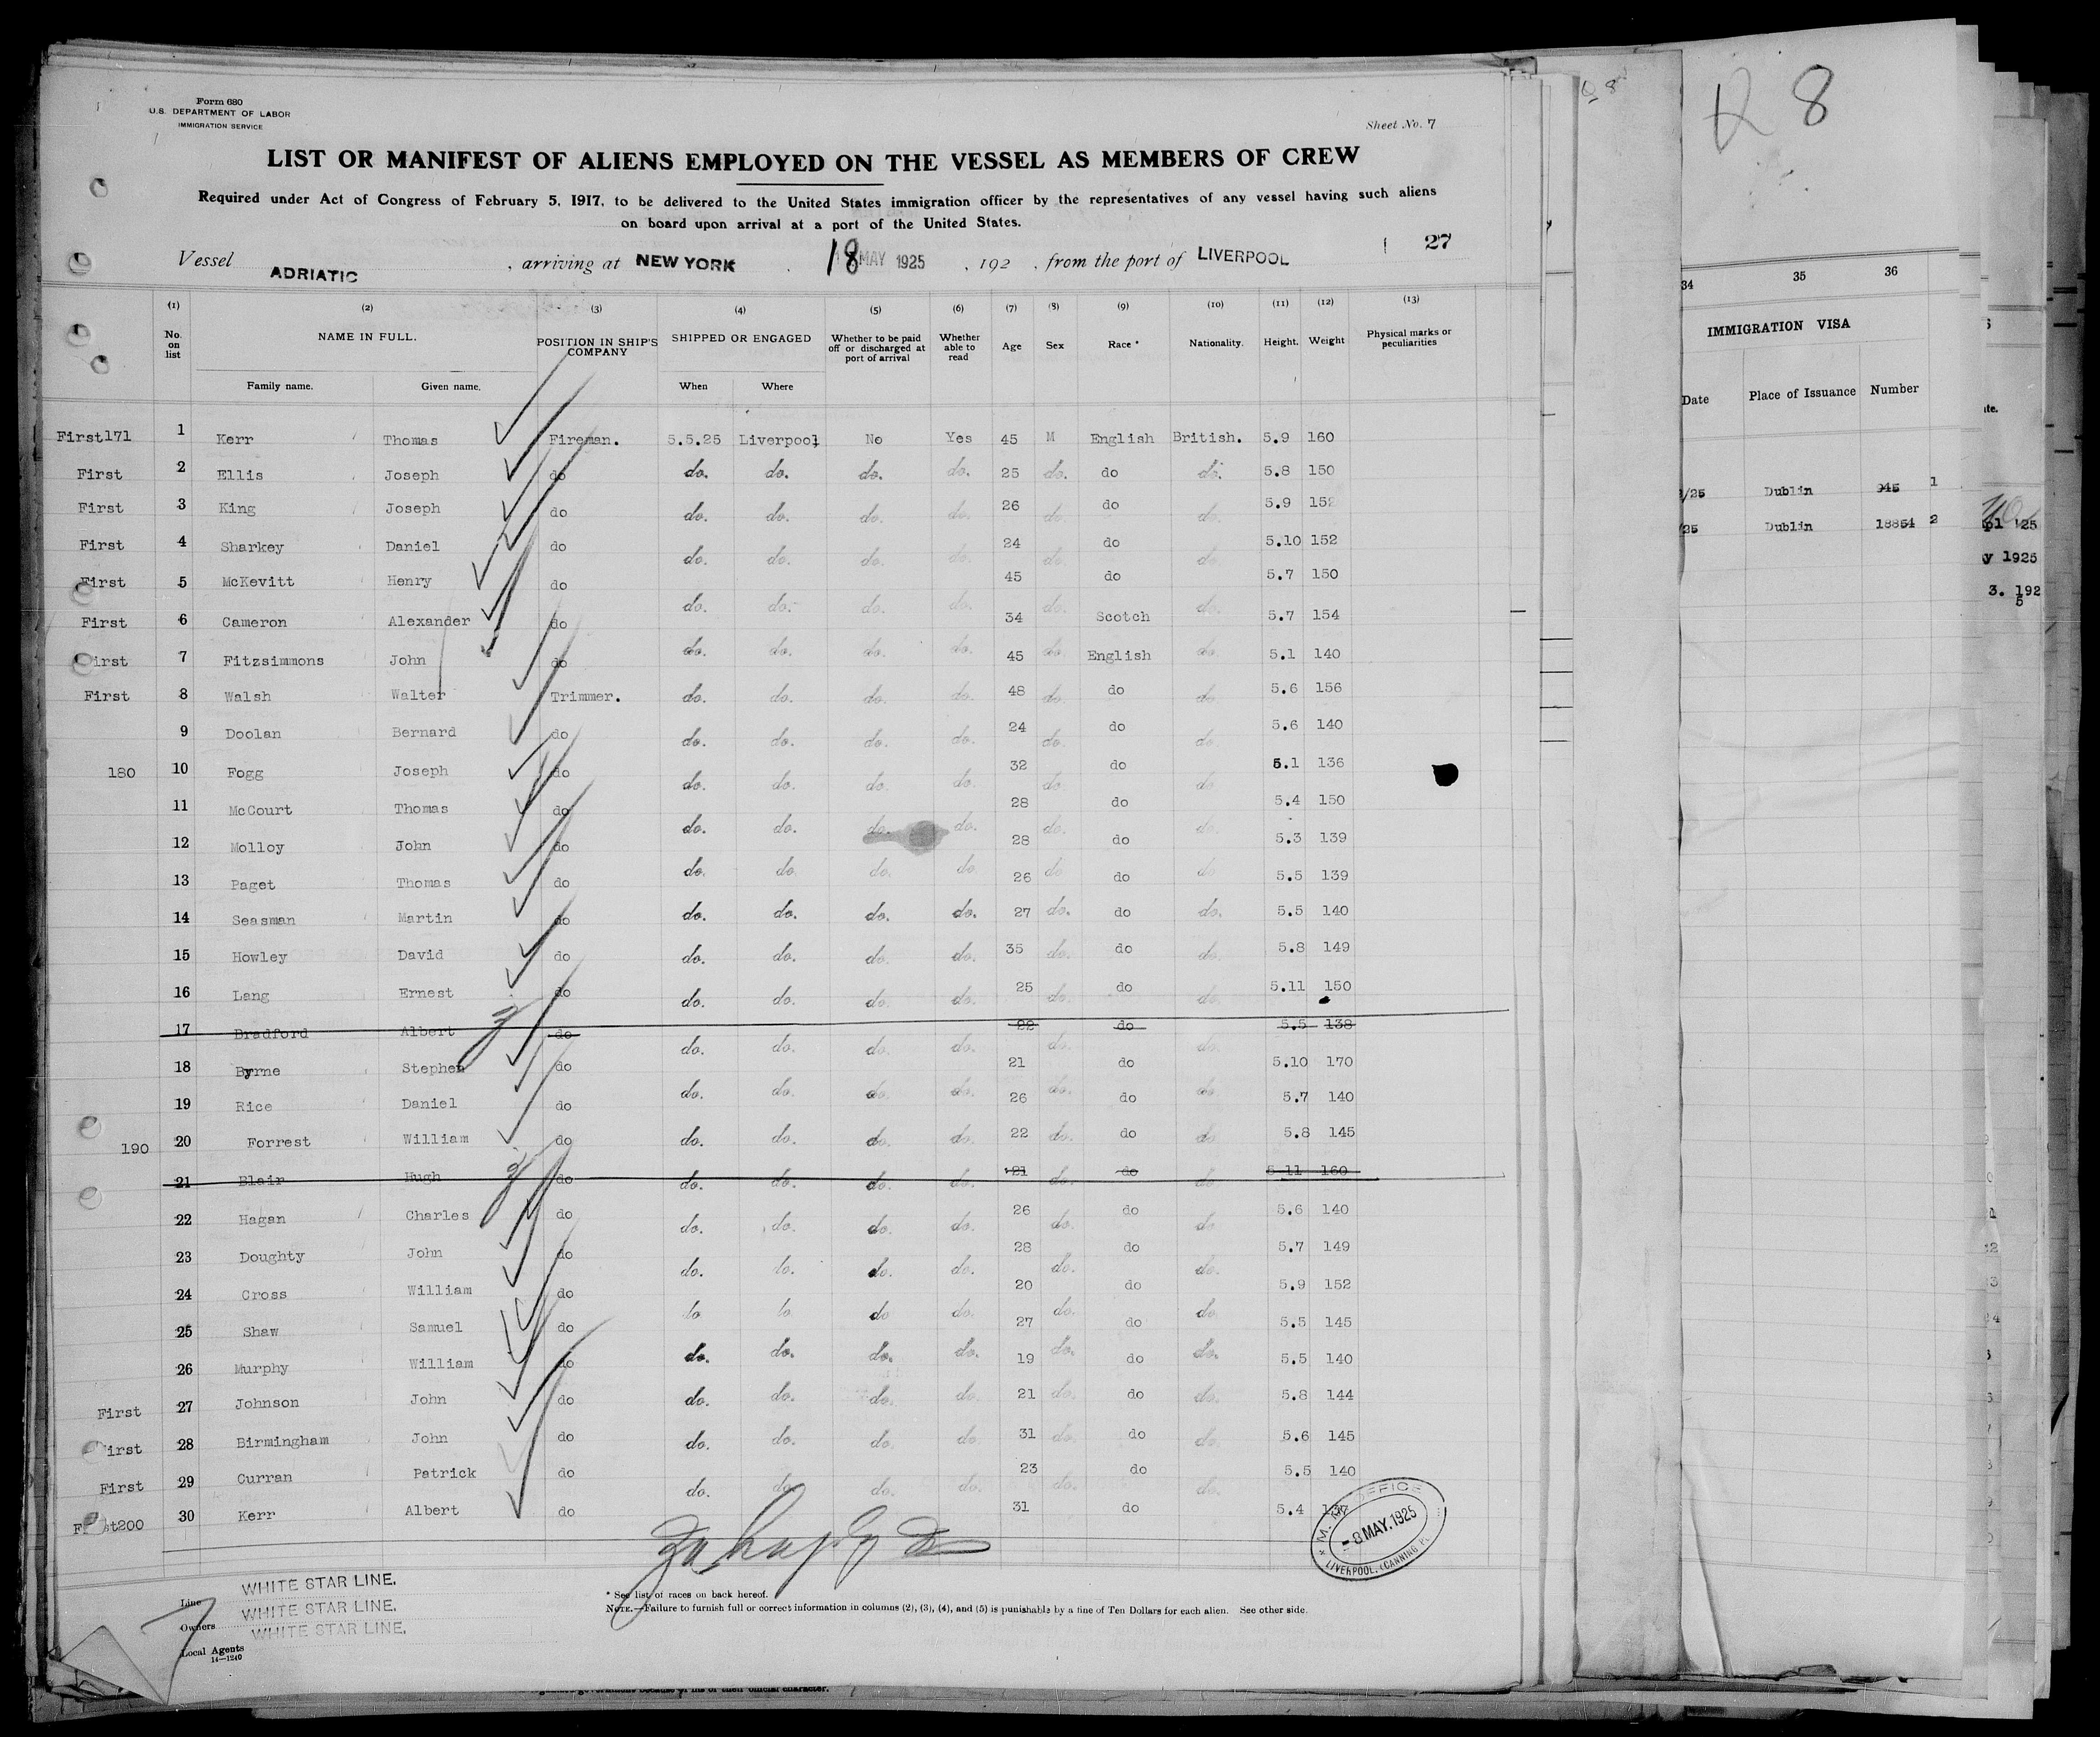 Form 680
U.S. DEPARTMENT OF LABOR
IMMIGRATION SERVICE
Sheet No. 7
LIST OR MANIFEST OF ALIENS EMPLOYED ON THE VESSEL AS MEMBERS OF CREW
Required under Act of Congress of February 5, 1917, to be delivered to the United States immigration officer by the representatives of any vessel having such aliens
on board upon arrival at a port of the United States.
Vessel ADRIATIC, arriving at NEW YORK, 18 MAY 1925, 192 , from the port of LIVERPOOL 27
(1) (2) (3) (4) (5) (6) (7) (8) (9) (10) (11) (12) (13)
No. on list NAME IN FULL. POSITION IN SHIP'S COMPANY SHIPPED OR ENGAGED Whether to be paid off or discharged at port of arrival Whether able to read Age Sex Race * Nationality. Height. Weight Physical marks or peculiarities
Family name. Given name. When Where
First171 1 Kerr Thomas Fireman. 5.5.25 Liverpool No Yes 45 M English British. 5.9 160
First 2 Ellis Joseph do do. do. do. do. 25 do. do do. 5.8 150
First 3 King Joseph do do. do. do. do. 26 do. do do. 5.9 152
First 4 Sharkey Daniel do do. do. do. do. 24 do. do do. 5.10 152
First 5 McKevitt Henry do do. do. do. do. 45 do. do do. 5.7 150
First 6 Cameron Alexander do do. do. do. do. 34 do. Scotch do. 5.7 154
First 7 Fitzsimmons John do do. do. do. do. 45 do. English do. 5.1 140
First 8 Walsh Walter Trimmer. do. do. do. do. 48 do. do do. 5.6 156
9 Doolan Bernard do do. do. do. do. 24 do. do do. 5.6 140
180 10 Fogg Joseph do do. do. do. do. 32 do. do do 5.1 136
11 McCourt Thomas do do. do. do. do. 28 do. do do. 5.4 150
12 Molloy John do do. do. do. do 28 do do do 5.3 139
13 Paget Thomas do 26 do 5.5 139
14 Seasman Martin do do. do. do. do. 27 do. do do. 5.5 140
15 Howley David do do. do. do. do. 35 do. do do. 5.8 149
16 Lang Ernest do do. do. do. do. 25 do. do do. 5.11 150
17 Bradford Albert do 22 do 5.5 138
18 Byrne Stephen do do. do. do. do. 21 do. do do. 5.10 170
19 Rice Daniel do do. do. do. do. 26 do. do do. 5.7 140
190 20 Forrest William do do. do. do. do. 22 do. do do. 5.8 145
21 Blair Hugh do do. do. do. do. 21 do. do do. 5.11 160
22 Hagan Charles do do. do. do. do. 26 do. do do. 5.6 140
23 Doughty John do do. do. do. do. 28 do. do do. 5.7 149
24 Cross William do do do do do. 20 do. do do. 5.9 152
25 Shaw Samuel do 27 do 5.5 145
26 Murphy William do do. do. do. do. 19 do. do do. 5.5 140
First 27 Johnson John do do. do. do. do. 21 do. do do. 5.8 144
First 28 Birmingham John do do. do. do. do. 31 do. do do. 5.6 145
First 29 Curran Patrick do do. do. do. do. 23 do. do do. 5.5 140
First200 30 Kerr Albert do 31 do 5.4 137
M.M. OFFICE
-8 MAY.1925
LIVERPOOL. (CANNING P
* See list of races on back hereof.
NOTE.—Failure to furnish full or correct information in columns (2), (3), (4), and (5) is punishable by a fine of Ten Dollars for each alien. See other side.
Line WHITE STAR LINE.
Owners WHITE STAR LINE.
Local Agents WHITE STAR LINE.
14—1240
7
R 8
34 35 36
IMMIGRATION VISA
Date Place of Issuance Number
/25 Dublin 945 1
/25 Dublin 18854 2
'25
y 1925
3. 192
5